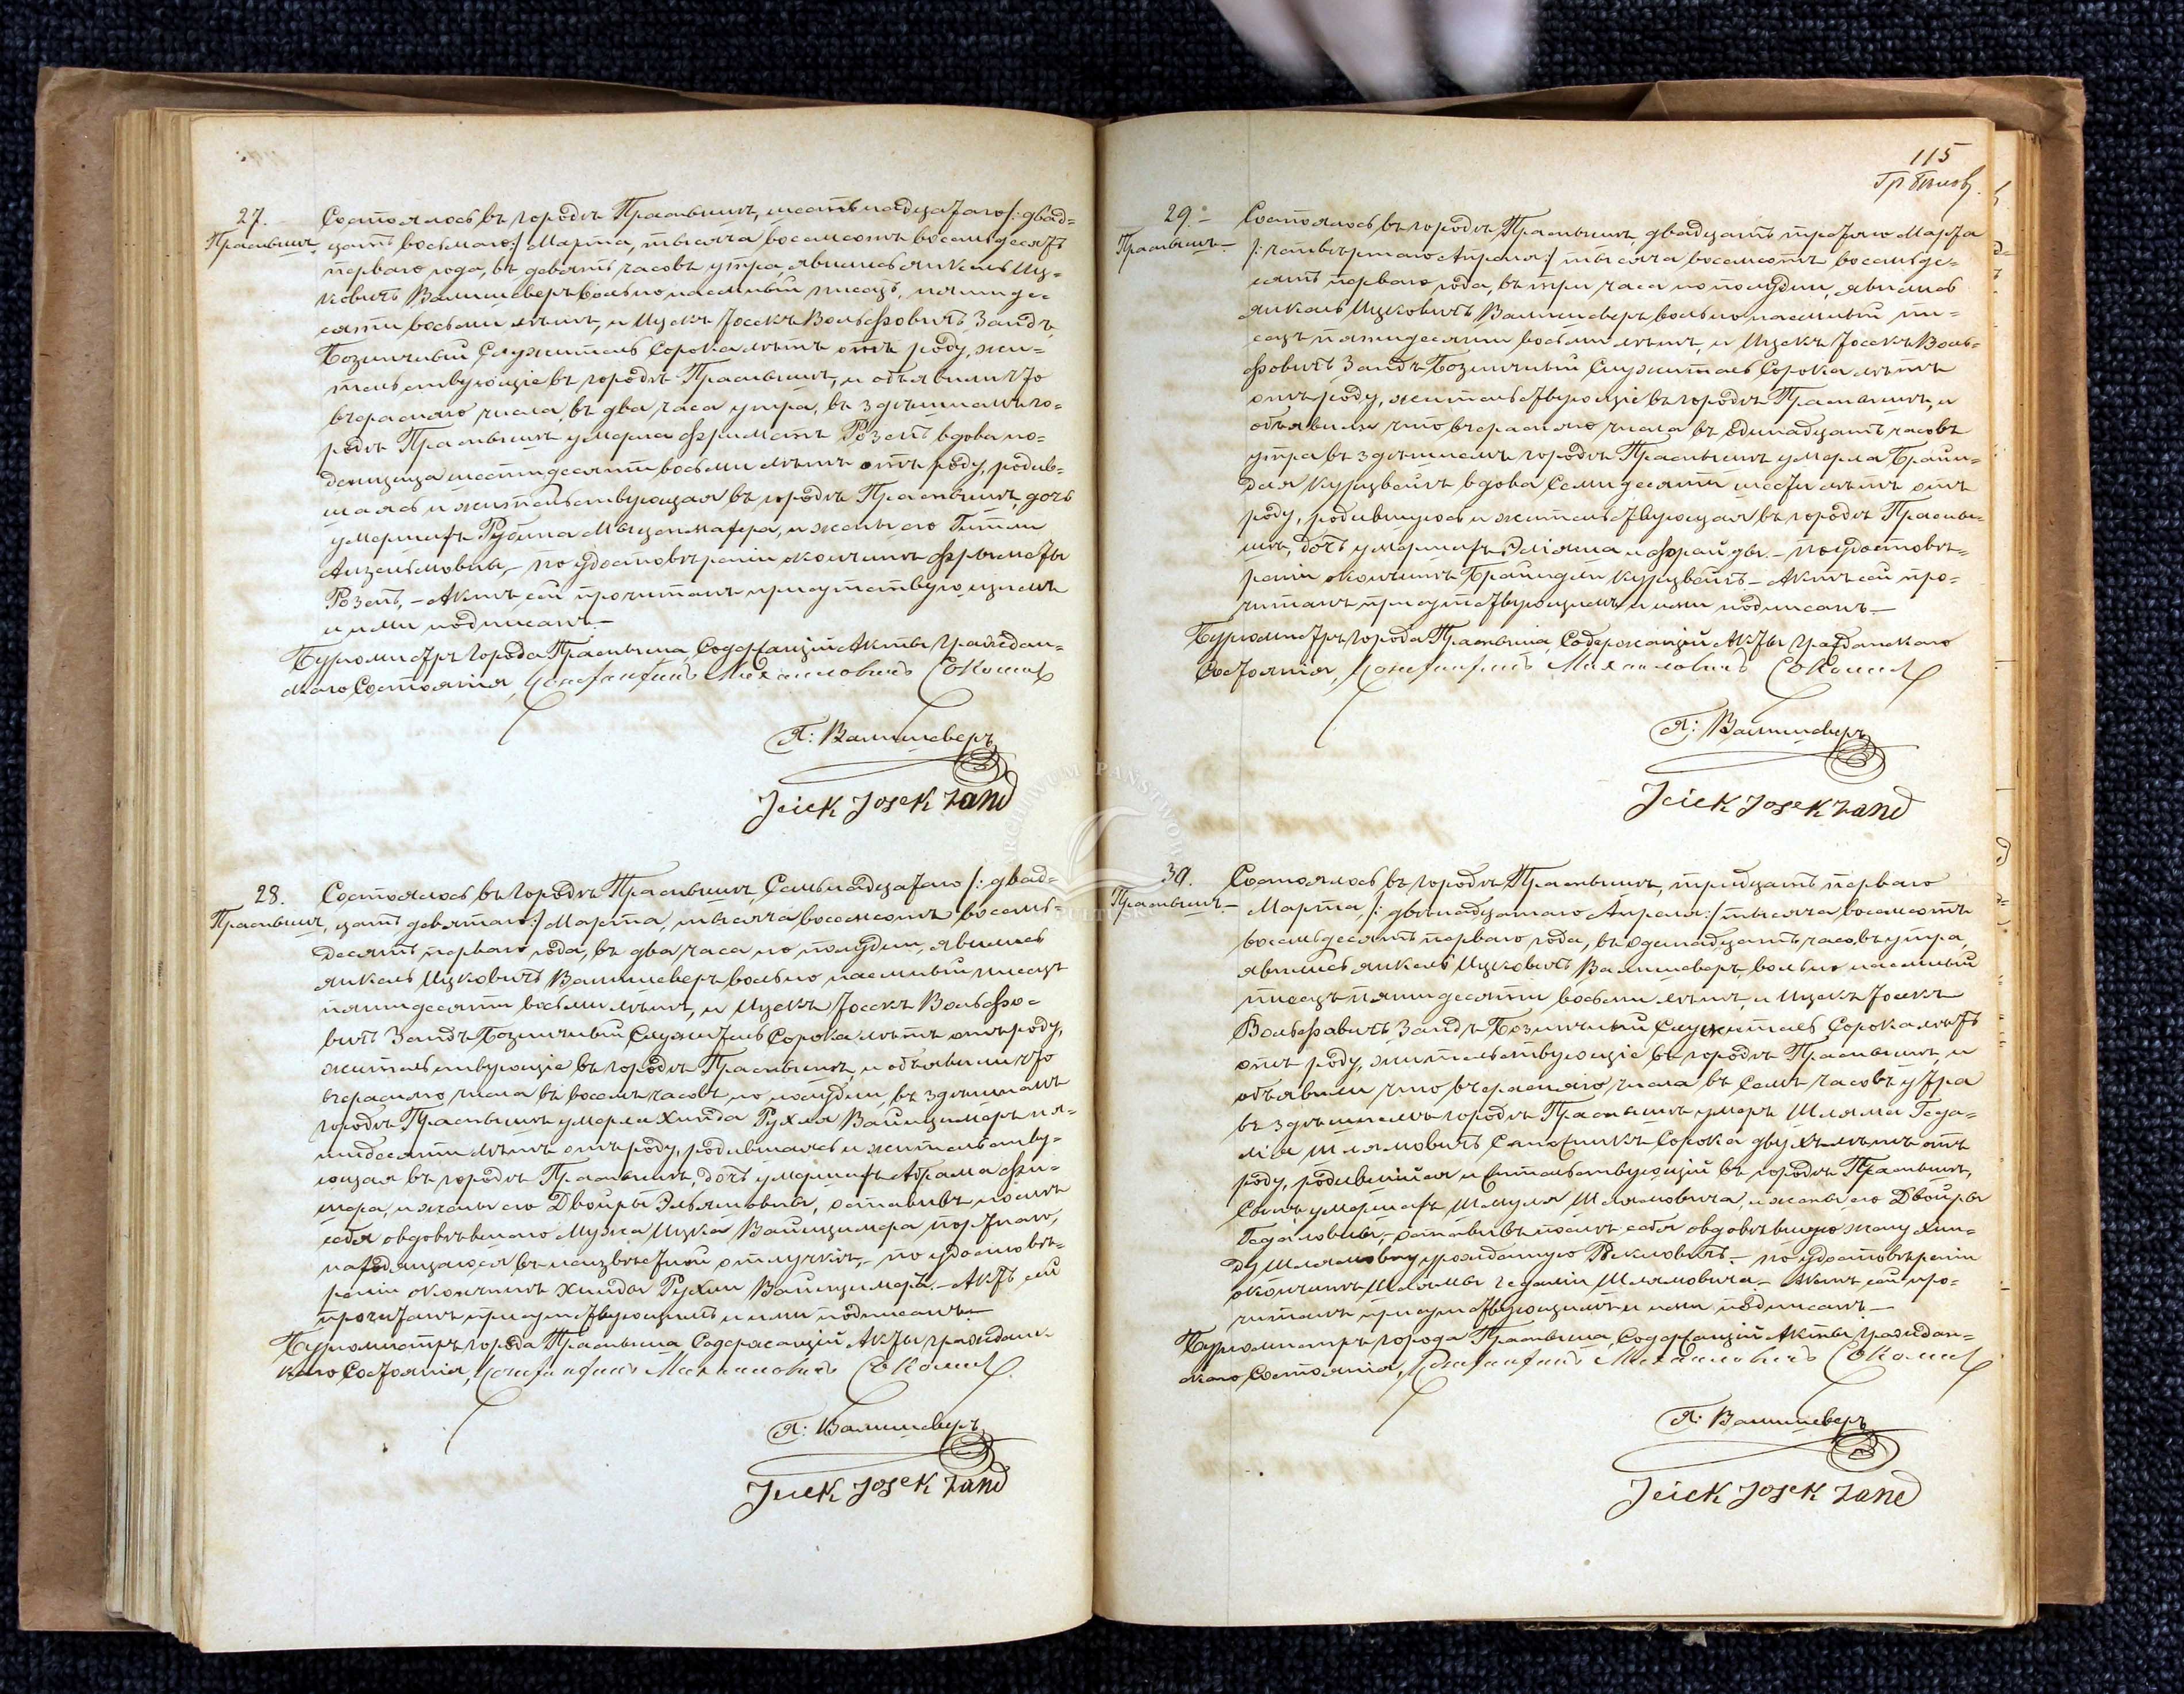 27.
Прасньішъ
Состоялось въ городѣ Прасньішѣ, шестьнадцатаго /: двад=
цать восьмаго :/ Марта, тысяча восемьсотъ восемьдесятъ
перваго года, въ девять часовъ утра, явились Янкель Иц=
ковичъ Валлишеверъ вольно наемный писецъ, пятиде=
сяти восьми лѣтъ, и Ицекъ Іосекъ Вольфовичъ Зандъ
Божничный Служитель Сорока лѣтъ отъ роду, жи=
тельствующіе въ городѣ Прасньішѣ, и объявили что
вчерашняго числа, въ два часа утра, въ здѣшнемъ го=
родѣ Прасньішѣ умерла Фримета Розенъ вдова по=
денщица шестидесяти восьми лѣтъ отъ роду, родив=
шаяся и жительствующая въ городѣ Прасньішѣ, дочь
умершихъ Рубина и жены его Гитли
по удостовѣреніи о кончинѣ Фриметы
Розенъ, - Актъ сей прочитанъ присутствующимъ
и ими подписанъ. -
Бургомистръ Города Прасньіша, Содержащій Акты Граждан=
скаго Состоянія, Константинъ Михаиловичъ
Я: Валлишеверъ
Jcick Josek Zand
28.
Прасньішъ
Состоялось въ Городѣ Прасньішѣ, Семьнадцатаго /: двад=
цать девятаго :/ Марта, тысяча восемьсотъ восемь=
десятъ перваго года, въ два часа по полудни, явились
Янкель Ицковичъ Валлишеверъ вольно наемный писецъ
пятидесяти восьми лѣтъ, и Ицекъ Іосекъ Вольфо=
вичъ Зандъ Божничный Служитель Сорока лѣтъ отъ роду,
жительствующіе въ городѣ Прасньішѣ, и объявили что
вчерашняго числа въ восемь часовъ по полудни, въ здѣшнемъ
городѣ Прасньішѣ умерла Хинда Рухля Вайнцимеръ пя=
тидесяти лѣтъ отъ роду, родившаяся и жительству=
ющая въ городѣ Прасньішѣ, дочь умершихъ Абрама Фи=
шера, и жены его Двойры оставивъ послѣ
себя овдовѣвшаго Мужа Ицка Вайнцимера портнаго,
находящагося въ неизвѣстной отлучкѣ, - по удостовѣ=
реніи о кончинѣ Хинды Рухли Вайнцимеръ. - Актъ сей
прочитанъ присутствующимъ и ими подписанъ. -
Бургомистръ города Прасньіша, Содержащій Акты Граждан=
скаго Состоянія, Константинъ Михаиловичъ
Я: Валлишеверъ
Jcick Josek Zand
115
29. -
Прасньішъ. -
Состоялось въ городѣ Прасньішѣ, двадцать третяго Марта
/: четвертаго Апрѣля :/ тысяча восемьсотъ восемьде=
сятъ перваго года, въ три часа по полудни, явились
Янкель Ицковичъ Валлишеверъ вольно наемный пи=
сецъ пятидесяти восьми лѣтъ, и Ицекъ Іосекъ Воль=
фовичъ Зандъ Божничный Служитель Сорока лѣтъ
отъ роду, жительствующіе въ городѣ Прасньішѣ, и
объявили что вчерашняго числа въ одинадцать часовъ
утра въ здѣшнемъ городѣ Прасньішѣ умерла Брайн=
для Курцвейлъ вдова Семидесяти шести лѣтъ отъ
роду, родившуюся и жительствующая въ городѣ Прасны=
шѣ, дочь умершихъ Эліяша и Фрайды. - По удостовѣ=
реніи о кончинѣ Брайндли Курцвейлъ - Актъ сей про=
читанъ присутствующимъ и ими подписанъ -
Бургомистръ города Прасньіша, Содержащій Акты Гражданскаго
Состоянія, Константинъ Михаиловичъ
Я: Валлишеверъ
Jcick Josek Zand
30.
Прасньішъ. -
Состоялось въ городѣ Прасньішѣ, тридцать перваго
Марта, /: двѣнадцатаго Апрѣля :/ тысяча восемьсотъ
восемьдесятъ перваго года, въ одинадцать часовъ утра,
явились Янкель Ицковичъ Валлишеверъ, вольно наемный
писецъ пятидесяти восьми лѣтъ, и Ицекъ Іосекъ
Вольфовичъ Зандъ Божничный Служитель Сорока лѣтъ
отъ роду, жительствующіе въ городѣ Прасньішѣ, и
объявили что вчерашняго числа въ Семь часовъ утра
въ здѣшнемъ городѣ Прасньішѣ умеръ Шляма Геда=
лія Шлямовичъ Сапожникъ Сорока двухъ лѣтъ отъ
роду, родившійся и жительствующій въ городѣ Прасньішѣ,
Сынъ умершихъ Шмуля Шлямовича, и жены его Двойры
оставивъ послѣ себя овдовѣвшую жену Хин=
ду Шлямовичъ урожденную - по удостовѣреніи
о кончинѣ Шлямы Гедаліи Шлямовича. - Актъ сей про=
читанъ присутствующимъ и ими подписанъ -
Бургомистръ города Прасньіша, Содержащій Акты Граждан=
скаго Состоянія, Константинъ Михаиловичъ
Я: Валлишеверъ
Jcick Josek Zand
ARCHIWUM PAŃSTWOWE
PUŁTUSK